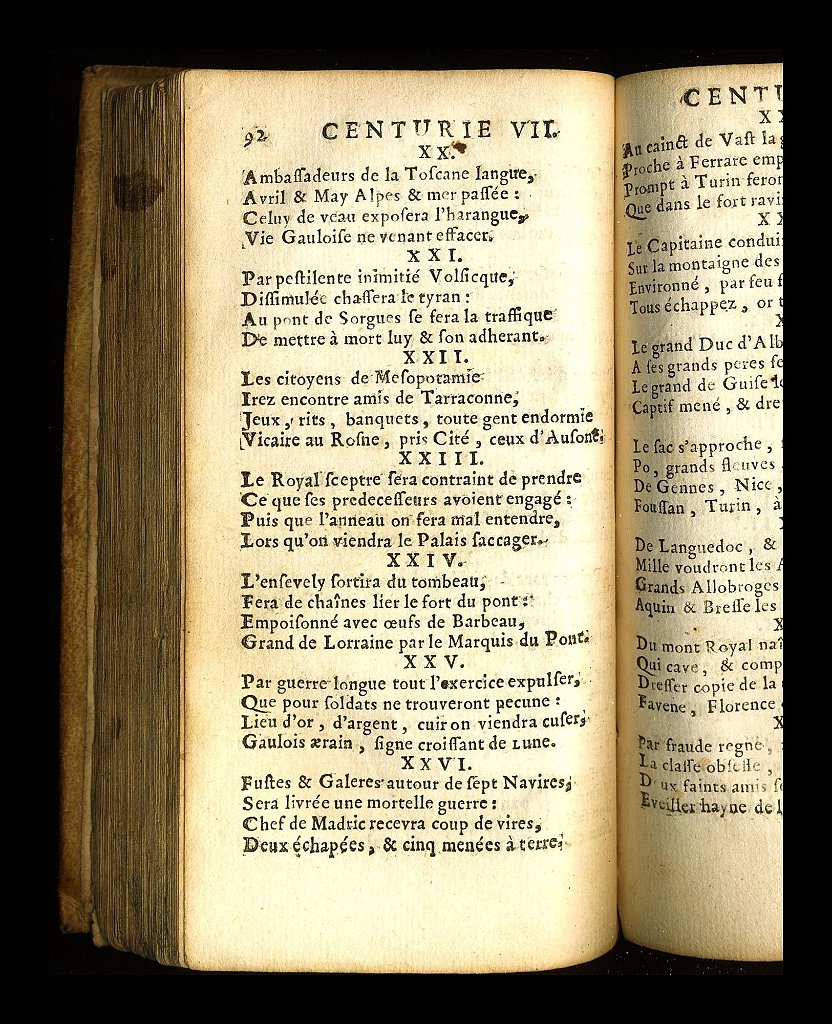 92 CENTURIE VII.
XX.
Ambaſſadeurs de la Toſcane langue,
Avril & May Alpes & mer paſſée :
Celuy de veau expoſera l'harangue,
Vie Gauloiſe ne venant effacer.
XXI.
Par peſtilente inimitié Volſicque,
Diſſimulée chaſſera le tyran :
Au pont de Sorgues ſe fera la traffique
De mettre à mort luy & ſon adherant.
XXII.
Les citoyens de Meſopotamie
Irez encontre amis de Tarraconne,
Jeux, rits, banquets, toute gent endormie
Vicaire au Roſne, pris Cité, ceux d'Auſone,
XXIII.
Le Royal ſceptre ſera contraint de prendre
Ce que ſes predeceſſeurs avoient engagé :
Puis que l'anneau on fera mal entendre,
Lors qu'on viendra le Palais ſaccager.
XXIV.
L'enſevely ſortira du tombeau,
Fera de chaînes lier le fort du pont :
Empoiſonné avec œufs de Barbeau,
Grand de Lorraine par le Marquis du Pont.
XXV.
Par guerre longue tout l'exercice expulſer,
Que pour ſoldats ne trouveront pecune :
Lieu d'or, d'argent, cuir on viendra cuſer,
Gaulois ærain, ſigne croiſſant de Lune.
XXVI.
Fuſtes & Galeres autour de ſept Navires,
Sera livrée une mortelle guerre :
Chef de Madric recevra coup de vires,
Deux échapées, & cinq menées à terre,
CENTU
XX
Au cainct de Vaſt la
Proche à Ferrare emp
Prompt à Turin feron
Que dans le fort ravi
XX
Le Capitaine condui
Sur la montaigne des
Environné, par feu
Tous échappez, or
Le grand Duc d'Alb
A ſes grands peres
Le grand de Guiſe
Captif mené, & dre
Le ſac s'approche,
Po, grands fleuves
De Gennes, Nice,
Fouſſan, Turin, à
De Languedoc, &
Mille voudront les
Grands Allobroges
Aquin & Breſſe les
Du mont Royal naî
Qui cave, & comp
Dreſſer copie de la
Favene, Florence
Par fraude regne,
La claſſe obſeſſe,
Deux faints amis
Eveiller hayne de